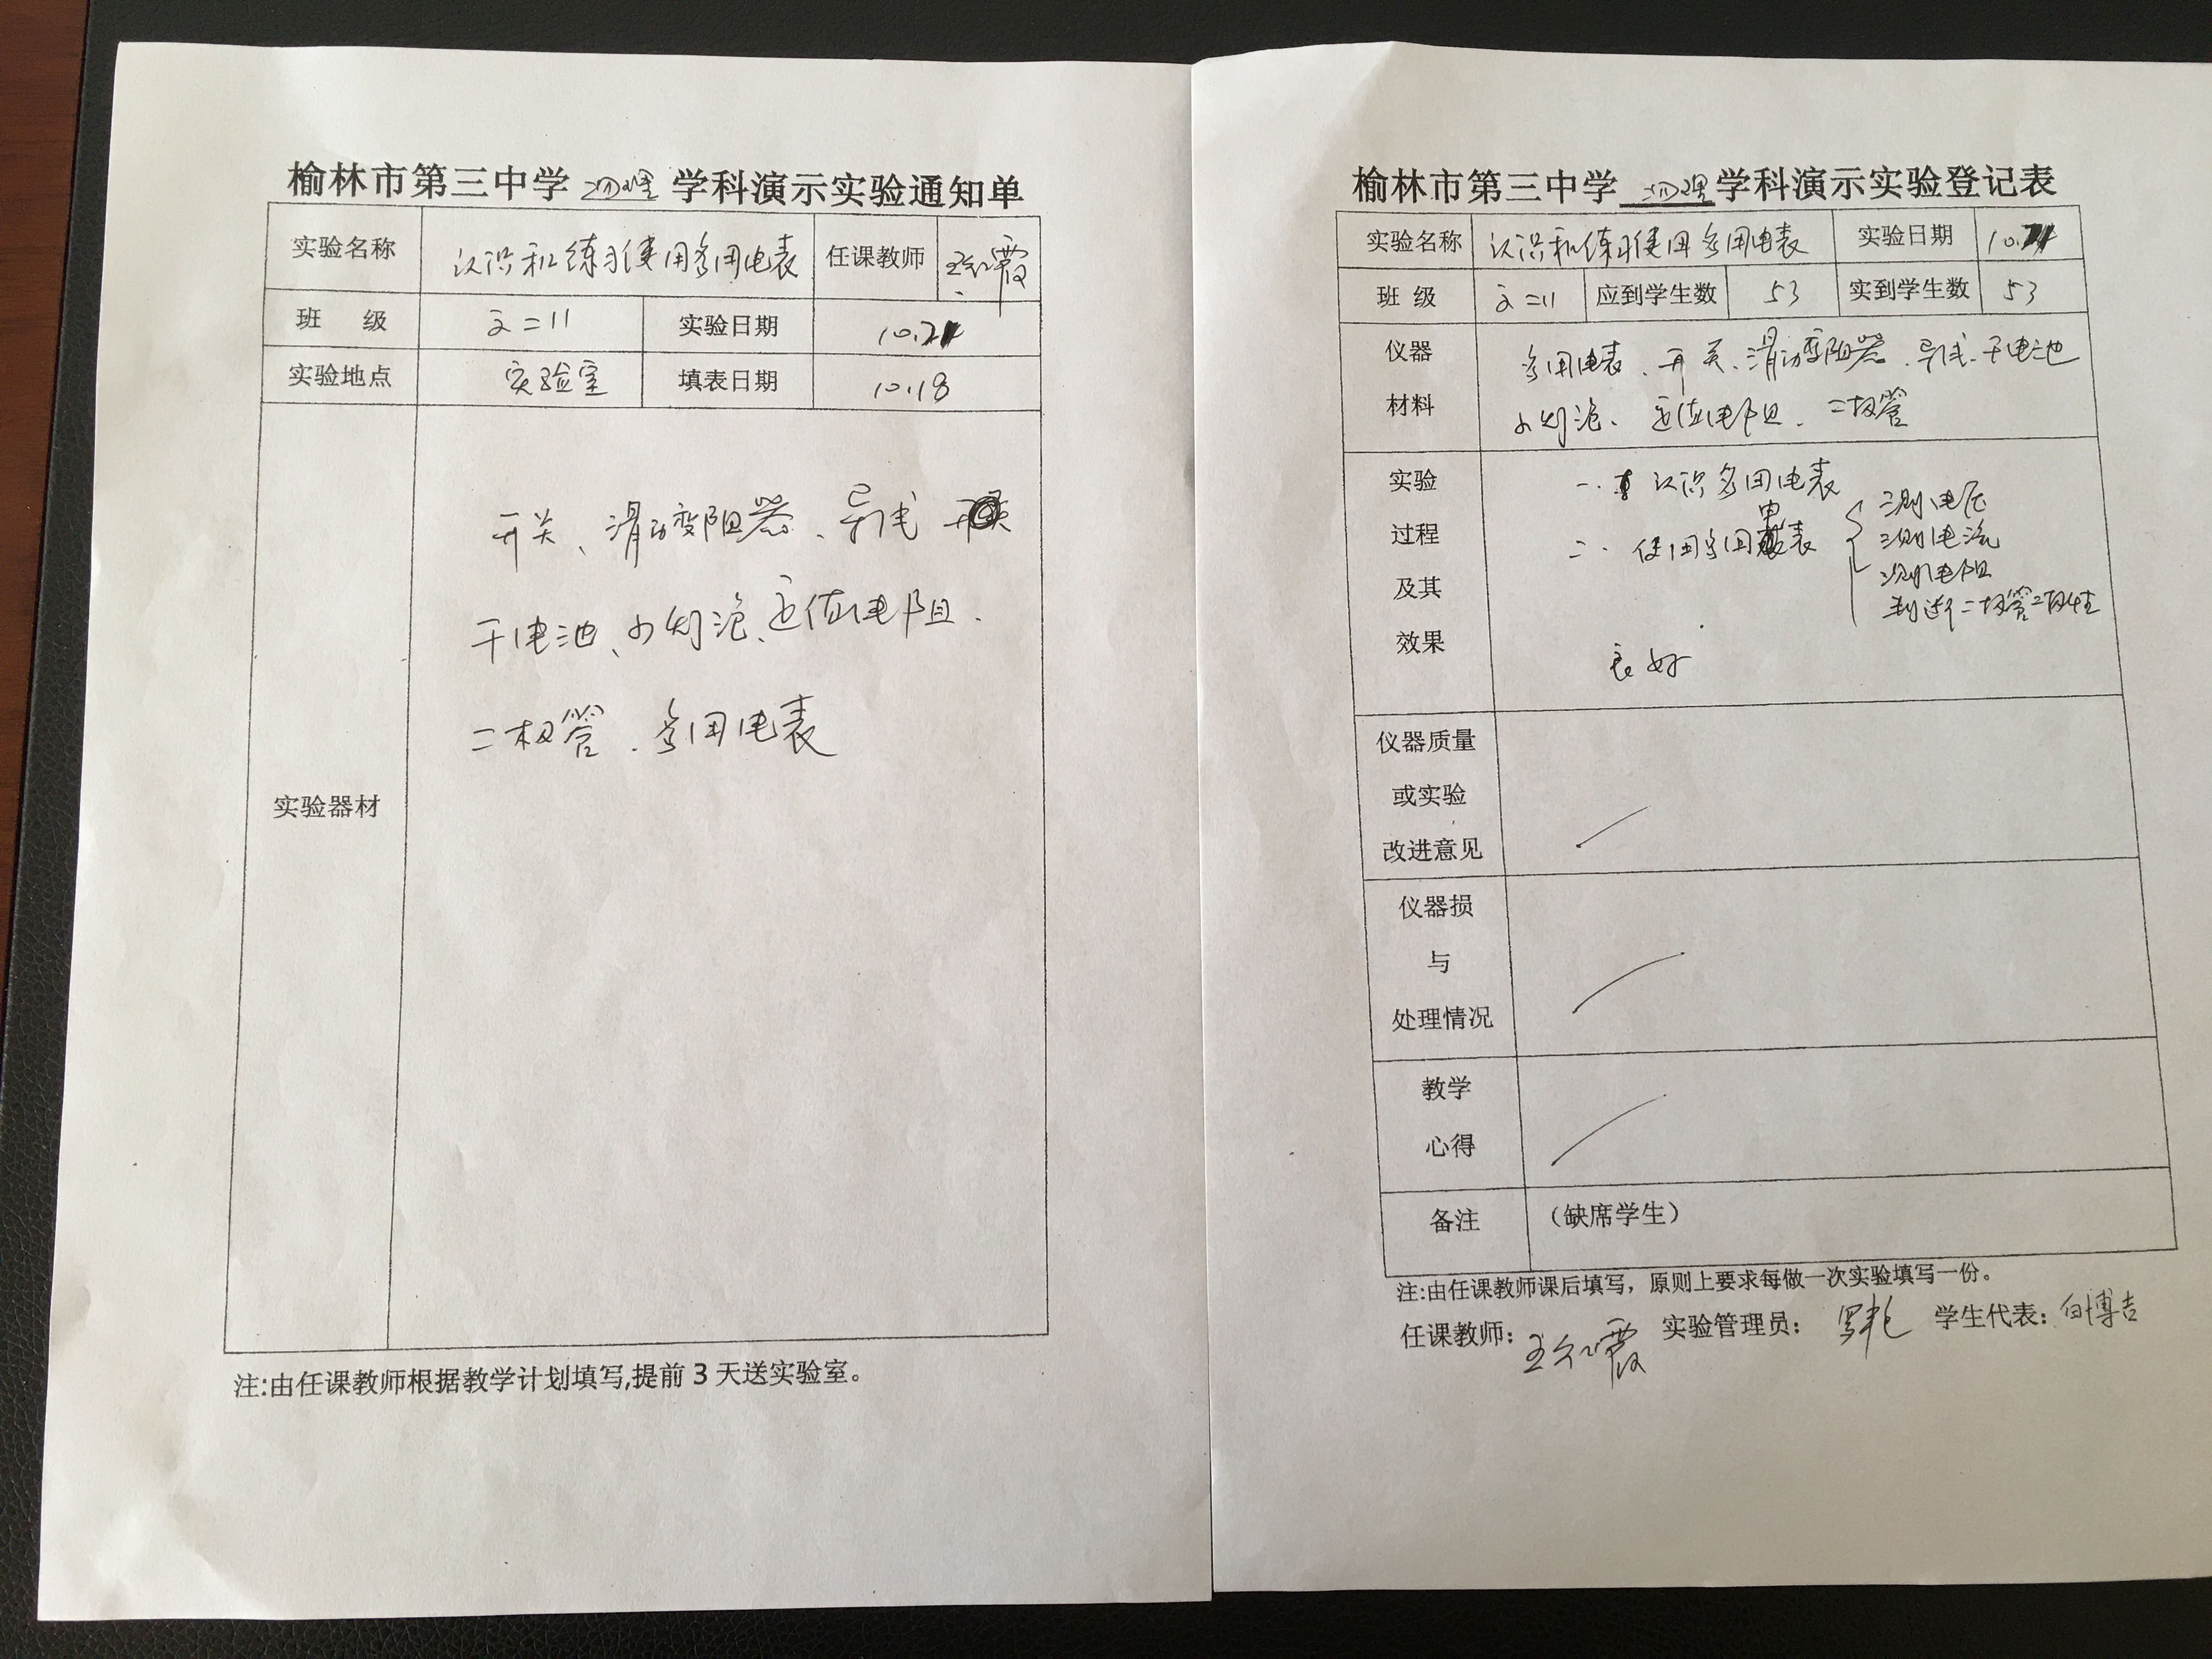 榆林市第三中学 物理 学科演示实验通知单
实验名称 认识和练习使用多用电表 任课教师
班 级 高二11 实验日期
实验地点 实验室 填表日期 10.18
实验器材
开关、滑动变阻器、导线
干电池、小灯泡、定值电阻、
二极管、多用电表
注:由任课教师根据教学计划填写,提前3天送实验室。
榆林市第三中学 物理 学科演示实验登记表
实验名称 认识和练习使用多用电表 实验日期
班 级 高二11 应到学生数 53 实到学生数 53
仪器
材料
多用电表、开关、滑动变阻器、导线、干电池
小灯泡、定值电阻、二极管
实验
过程
及其
效果
一、认识多用电表
二、使用多用电表
测电压
测电流
测电阻
判断二极管二极性
良好
仪器质量
或实验
改进意见
仪器损
与
处理情况
教学
心得
备注 （缺席学生）
注:由任课教师课后填写，原则上要求每做一次实验填写一份。
任课教师： 实验管理员： 学生代表：白博吉